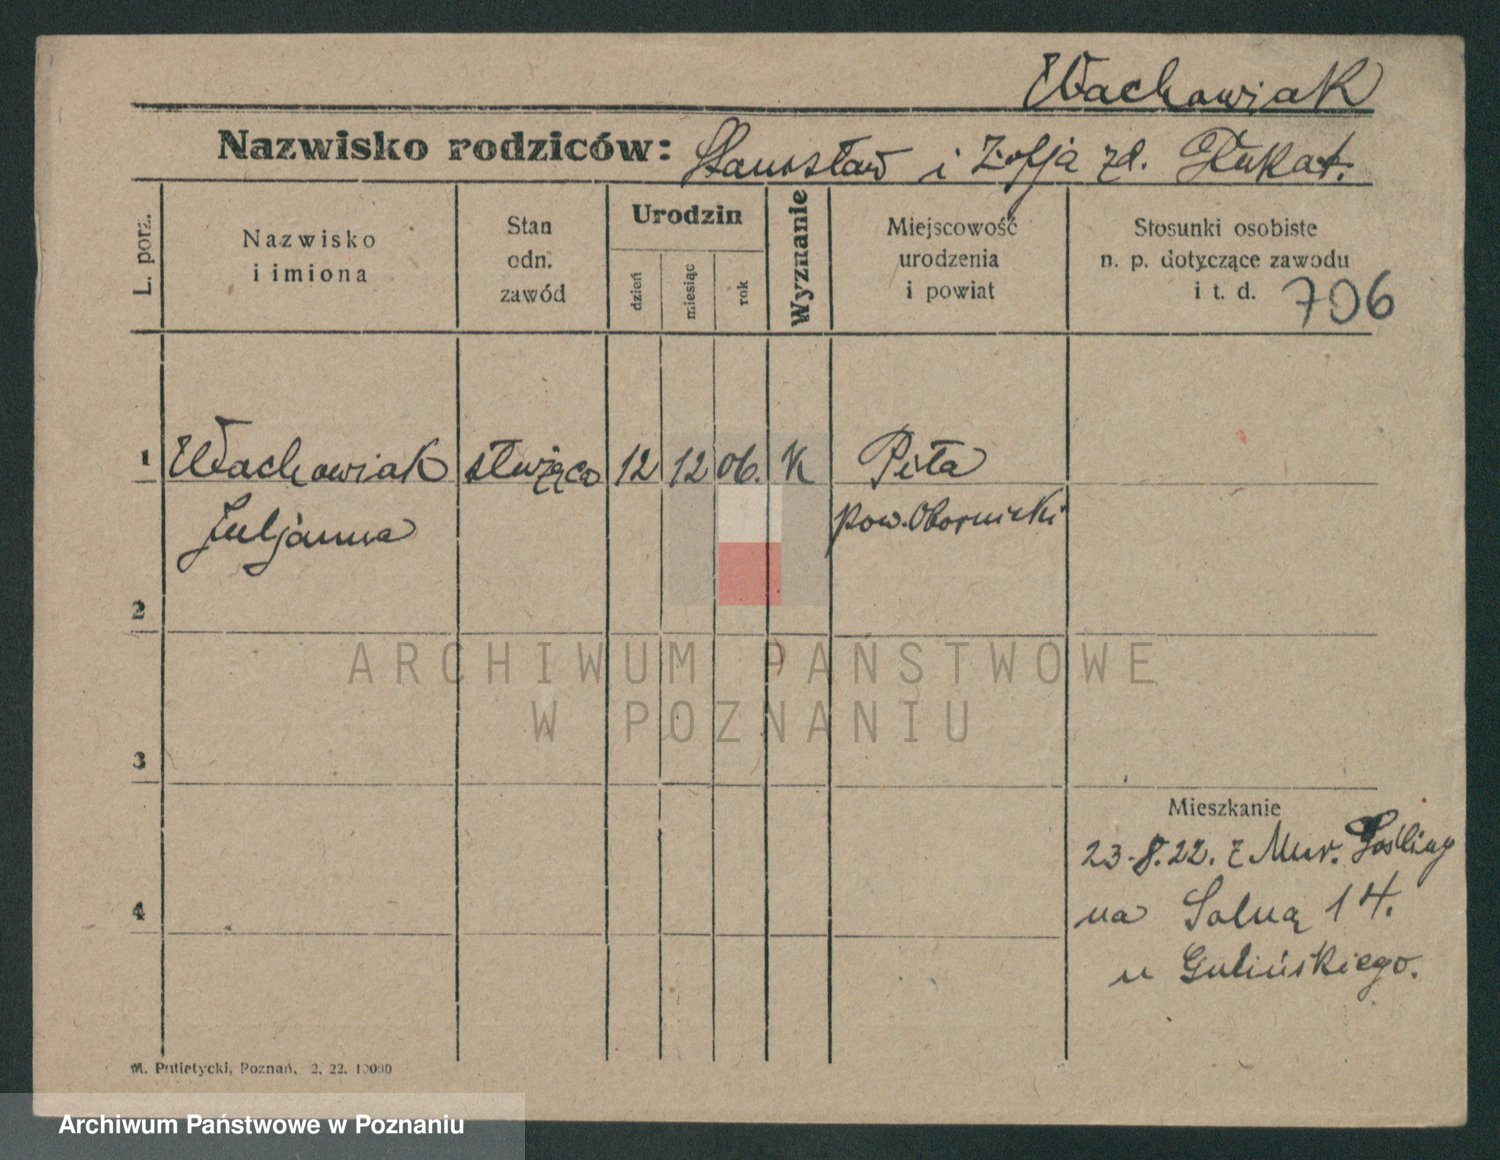 Wachowiak
Nazwisko rodziców: Stanisław i Zofja zd. Głukat.
L. porz.
Nazwisko
i imiona
Stan
odn.
zawód
Urodzin
dzień
miesiąc
rok
Wyznanie
Miejscowość
urodzenia
i powiat
Stosunki osobiste
n. p. dotyczące zawodu
i t. d.
706
1 Wachowiak służąca 12 12 06. K Piła
Juljanna pow. Obornicki
2
3
4
Mieszkanie
23.8.22. z Mur. Gośliny
na Solną 14.
u Gulińskiego.
M. Putiatycki, Poznań, 2. 22. 10000
ARCHIWUM PAŃSTWOWE
W POZNANIU
Archiwum Państwowe w Poznaniu